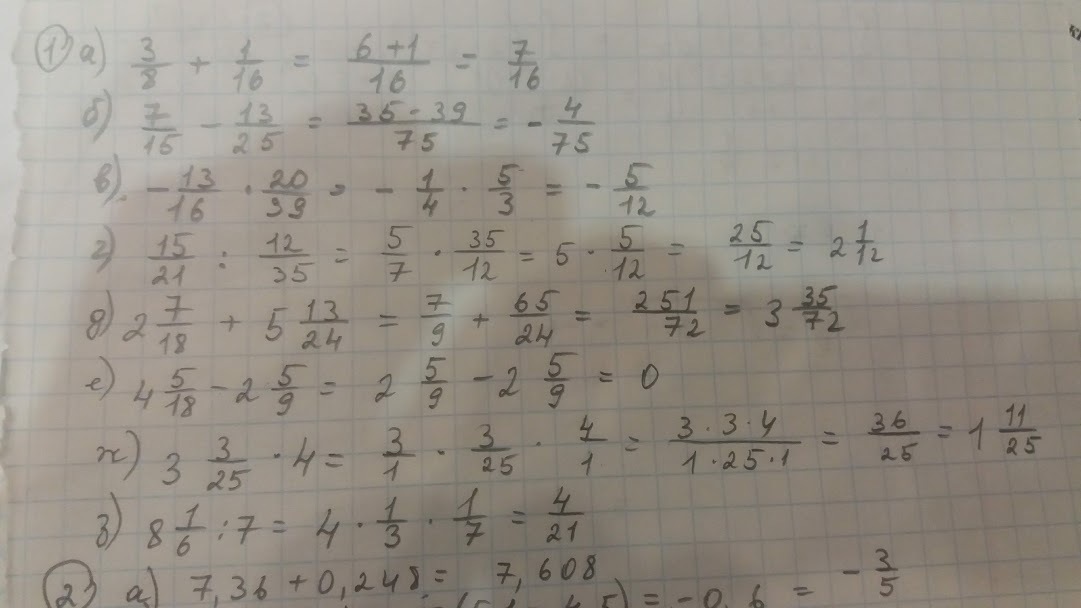 1) а) 3/8 + 1/16 = (6+1)/16 = 7/16
б) 7/15 - 13/25 = (35-39)/75 = - 4/75
в) - 13/16 · 20/39 = - 1/4 · 5/3 = - 5/12
г) 15/21 : 12/35 = 5/7 · 35/12 = 5 · 5/12 = 25/12 = 2 1/12
д) 2 7/18 + 5 13/24 = 7/9 + 65/24 = 251/72 = 3 35/72
е) 4 5/18 - 2 5/9 = 2 5/9 - 2 5/9 = 0
ж) 3 3/25 · 4 = 3/1 · 3/25 · 4/1 = (3·3·4)/(1·25·1) = 36/25 = 1 11/25
з) 8 1/6 : 7 = 4 · 1/3 · 1/7 = 4/21
2) а) 7,36 + 0,248 = 7,608
= -0,6 = - 3/5